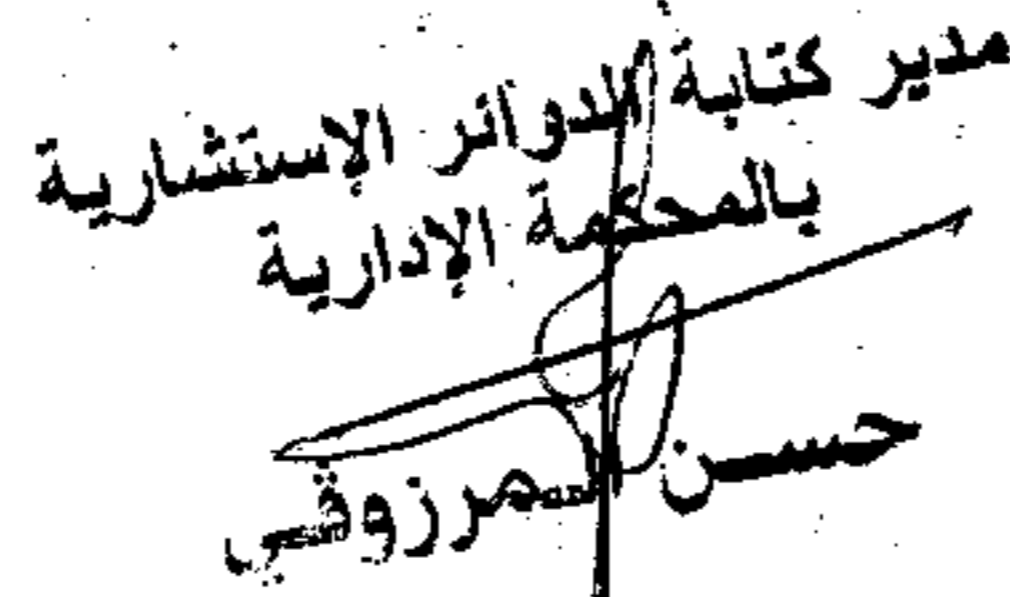 مدير كتابة الدوائر الإستشارية
بالمحكمة الإدارية
حسن المرزوقي